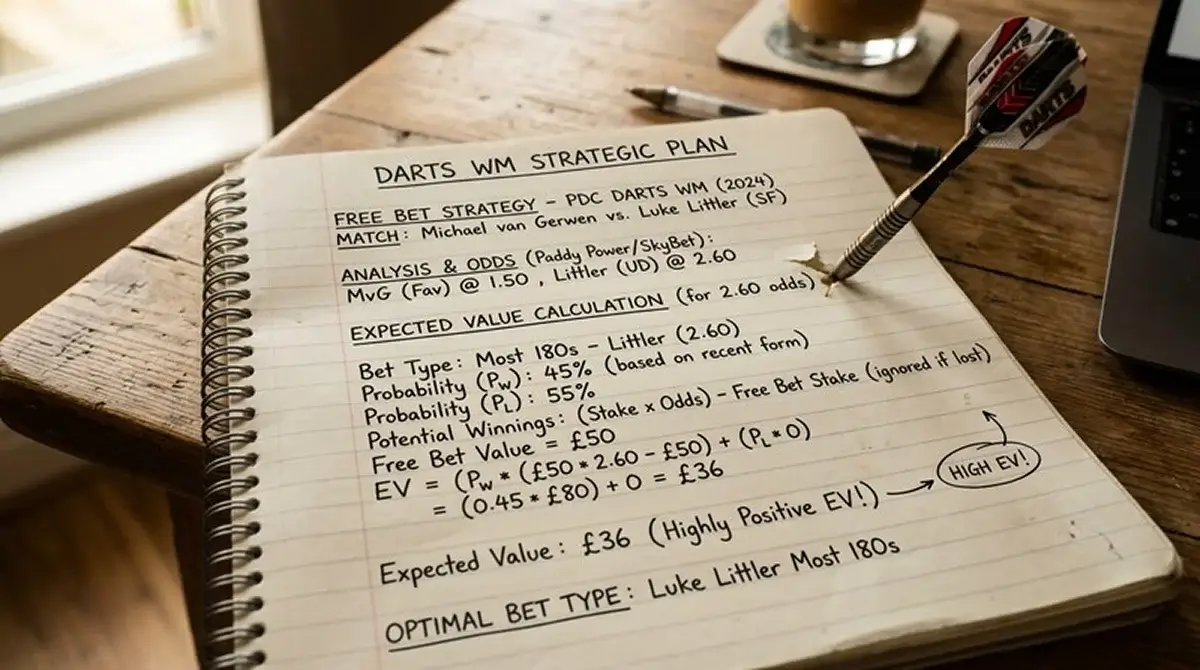 DARTS WM STRATEGIC PLAN
FREE BET STRATEGY – PDC DARTS WM (2024)
MATCH: Michael van Gerwen vs. Luke Littler (SF)
ANALYSIS & ODDS (Paddy Power/SkyBet):
MvG (Fav) @ 1.50 , Littler (UD) @ 2.60
EXPECTED VALUE CALCULATION (for 2.60 odds)
Bet Type: Most 180s – Littler (2.60)
Probability (Pw): 45% (based on recent form)
Probability (PL): 55%
Potential Winnings: (Stake x Odds) – Free Bet Stake (ignored if lost)
Free Bet Value = £50
EV = (Pw * (£50 * 2.60 – £50) + (PL * 0)
= (0.45 * £80) + 0 = £36
HIGH EV!
Expected Value: £36 (Highly Positive EV!)
OPTIMAL BET TYPE: Luke Littler Most 180s
DARTS